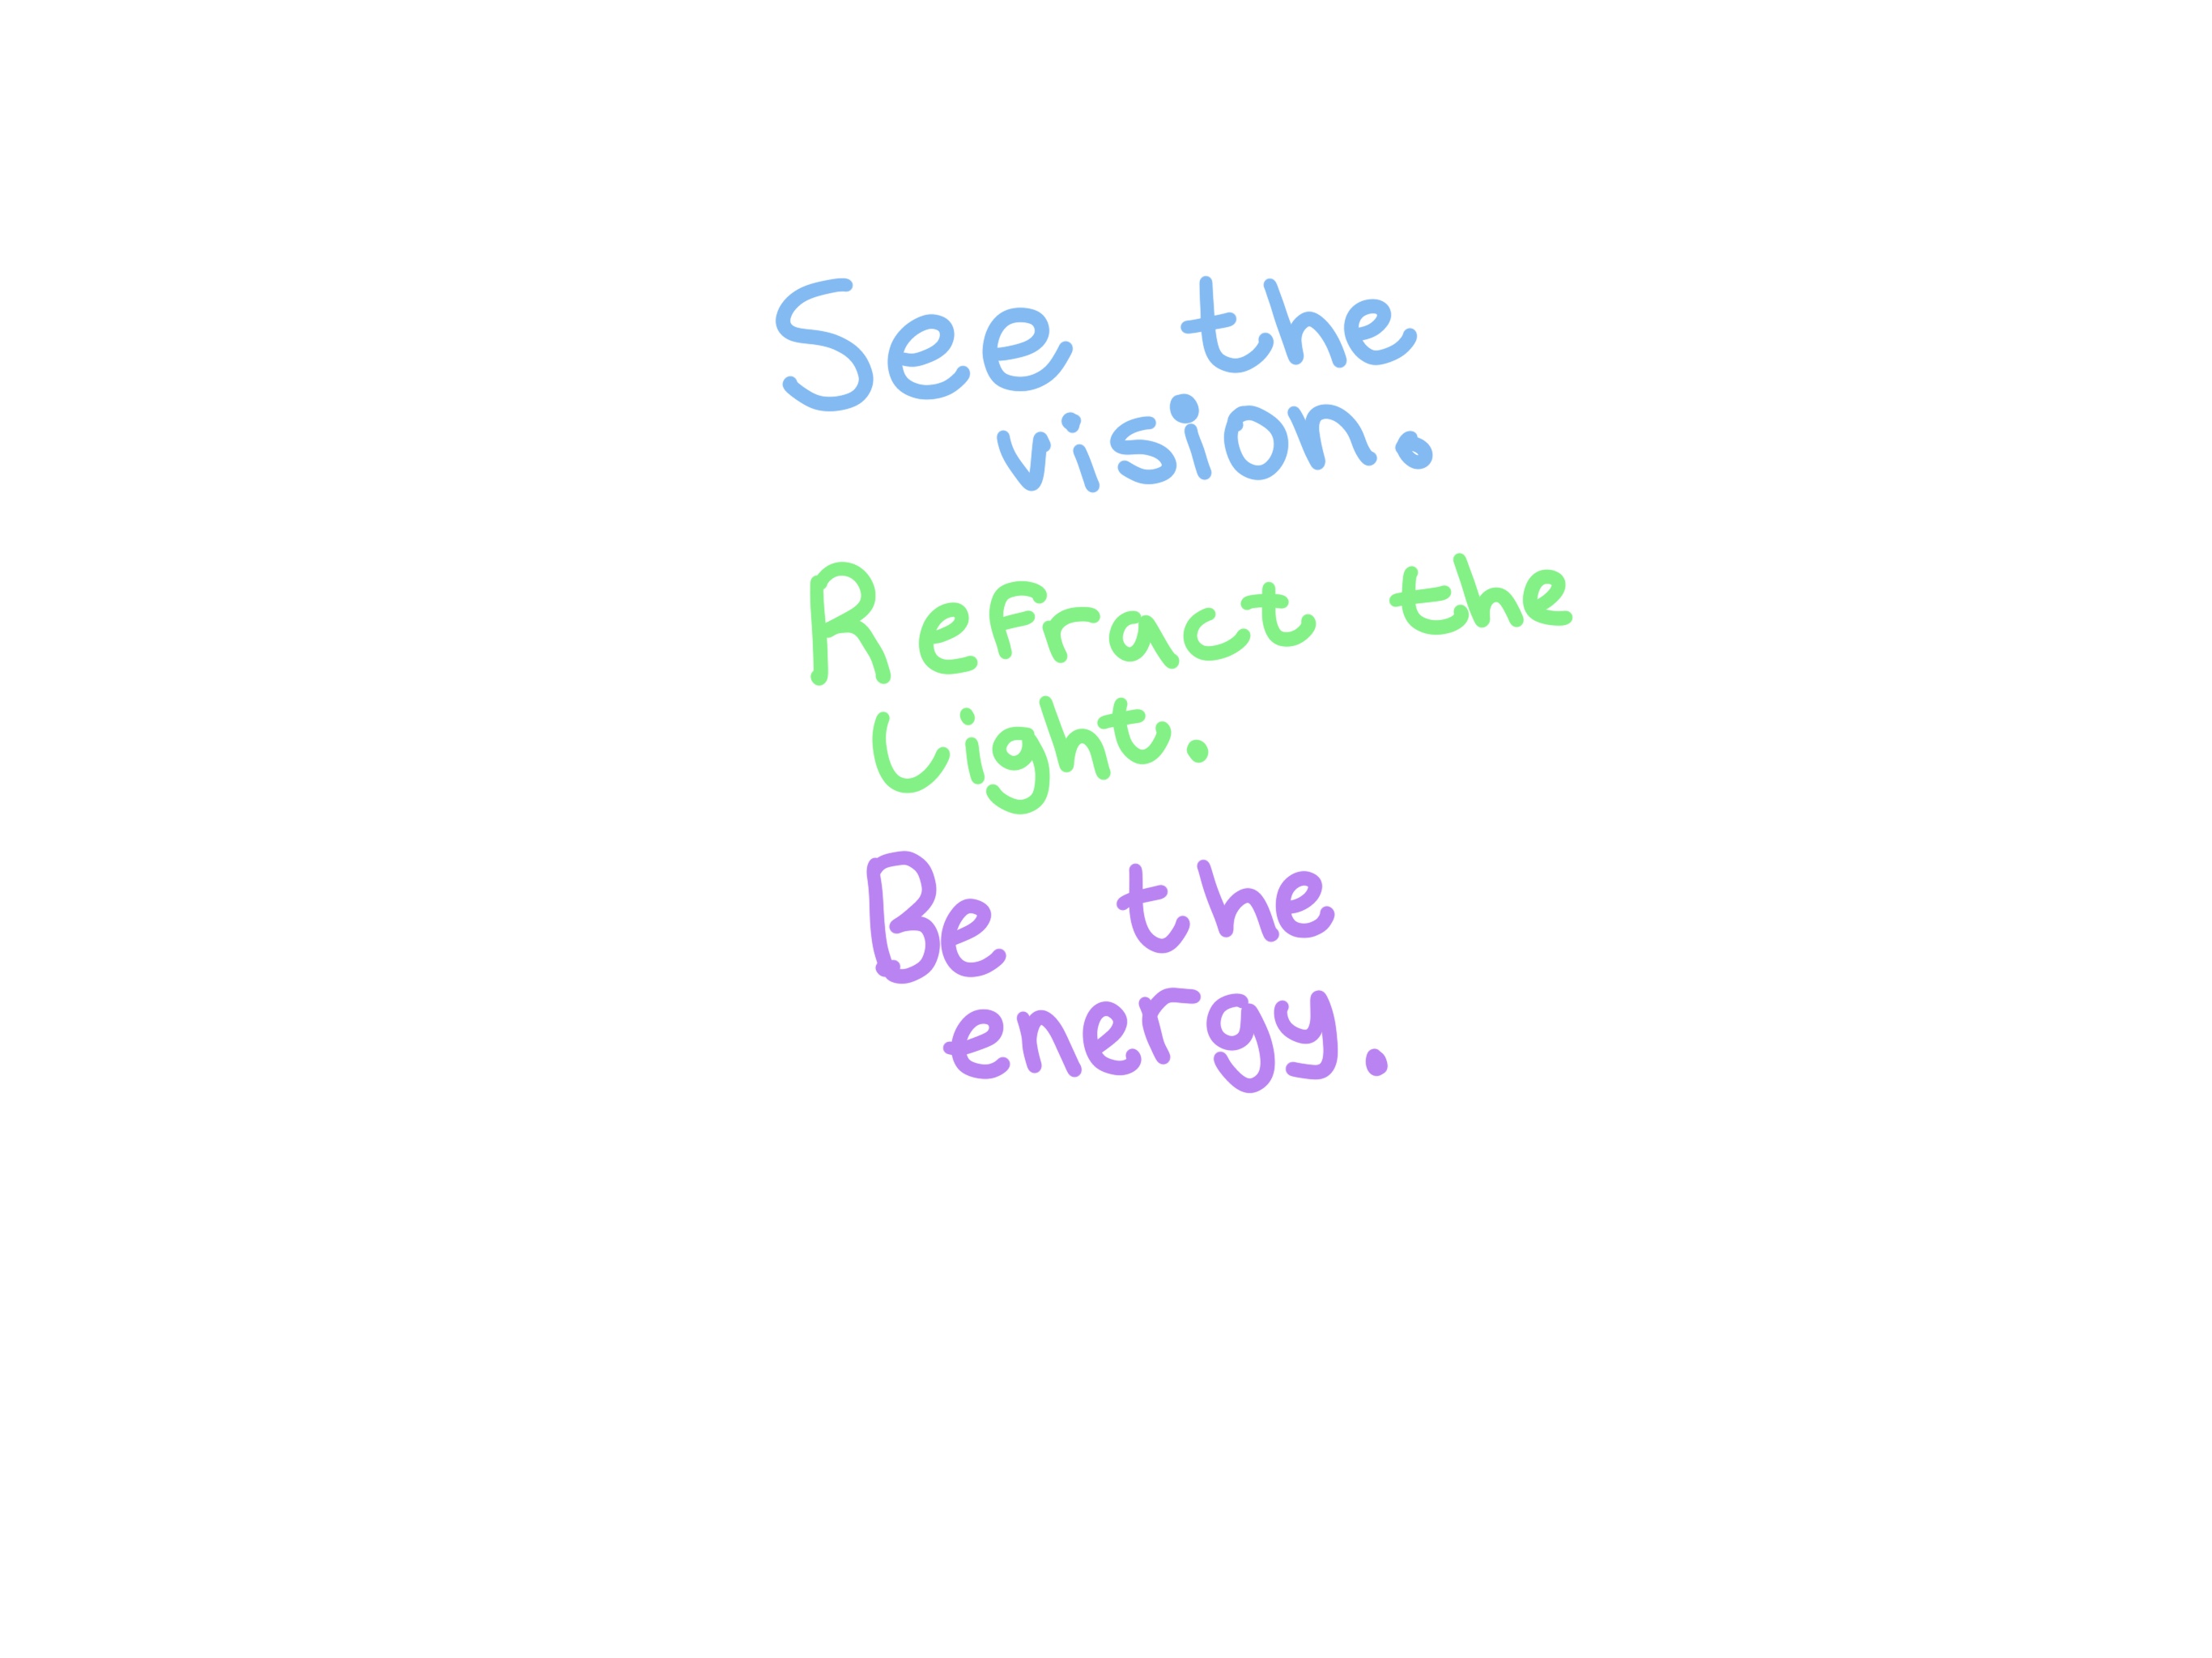 See the
vision.
Refract the
Light.
Be the
energy.